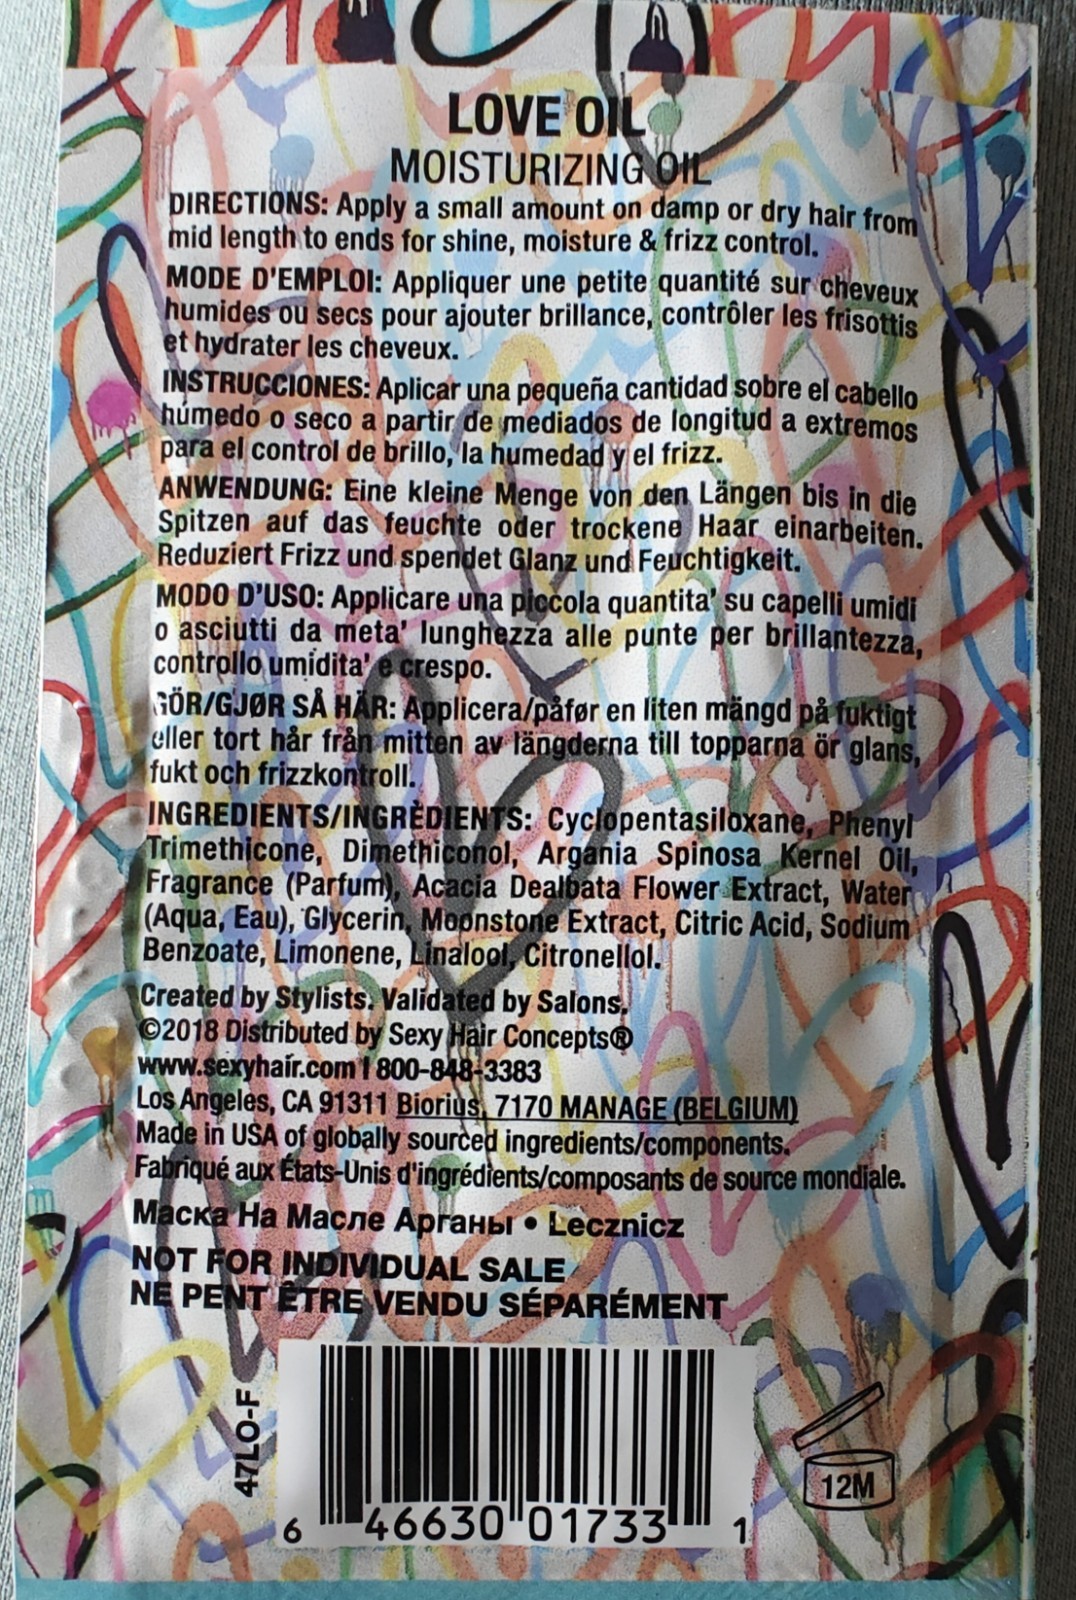 LOVE OIL
MOISTURIZING OIL
DIRECTIONS: Apply a small amount on damp or dry hair from
mid length to ends for shine, moisture & frizz control.
MODE D'EMPLOI: Appliquer une petite quantité sur cheveux
humides ou secs pour ajouter brillance, contrôler les frisottis
et hydrater les cheveux.
INSTRUCCIONES: Aplicar una pequeña cantidad sobre el cabello
húmedo o seco a partir de mediados de longitud a extremos
para el control de brillo, la humedad y el frizz.
ANWENDUNG: Eine kleine Menge von den Längen bis in die
Spitzen auf das feuchte oder trockene Haar einarbeiten.
Reduziert Frizz und spendet Glanz und Feuchtigkeit.
MODO D'USO: Applicare una piccola quantita' su capelli umidi
o asciutti da meta' lunghezza alle punte per brillantezza,
controllo umidita' e crespo.
GÖR/GJØR SÅ HÄR: Applicera/påfør en liten mängd på fuktigt
eller tort hår från mitten av längderna till topparna ör glans,
fukt och frizzkontroll.
INGREDIENTS/INGRÈDIENTS: Cyclopentasiloxane, Phenyl
Trimethicone, Dimethiconol, Argania Spinosa Kernel Oil,
Fragrance (Parfum), Acacia Dealbata Flower Extract, Water
(Aqua, Eau), Glycerin, Moonstone Extract, Citric Acid, Sodium
Benzoate, Limonene, Linalool, Citronellol.
Created by Stylists. Validated by Salons.
©2018 Distributed by Sexy Hair Concepts®
www.sexyhair.com 1 800-848-3383
Los Angeles, CA 91311 Biorius, 7170 MANAGE (BELGIUM)
Made in USA of globally sourced ingredients/components.
Fabriqué aux États-Unis d'ingrédients/composants de source mondiale.
Маска На Масле Арганы • Lecznicz
NOT FOR INDIVIDUAL SALE
NE PENT ÊTRE VENDU SÉPARÉMENT
47LO-F
12M
6 46630 01733 1